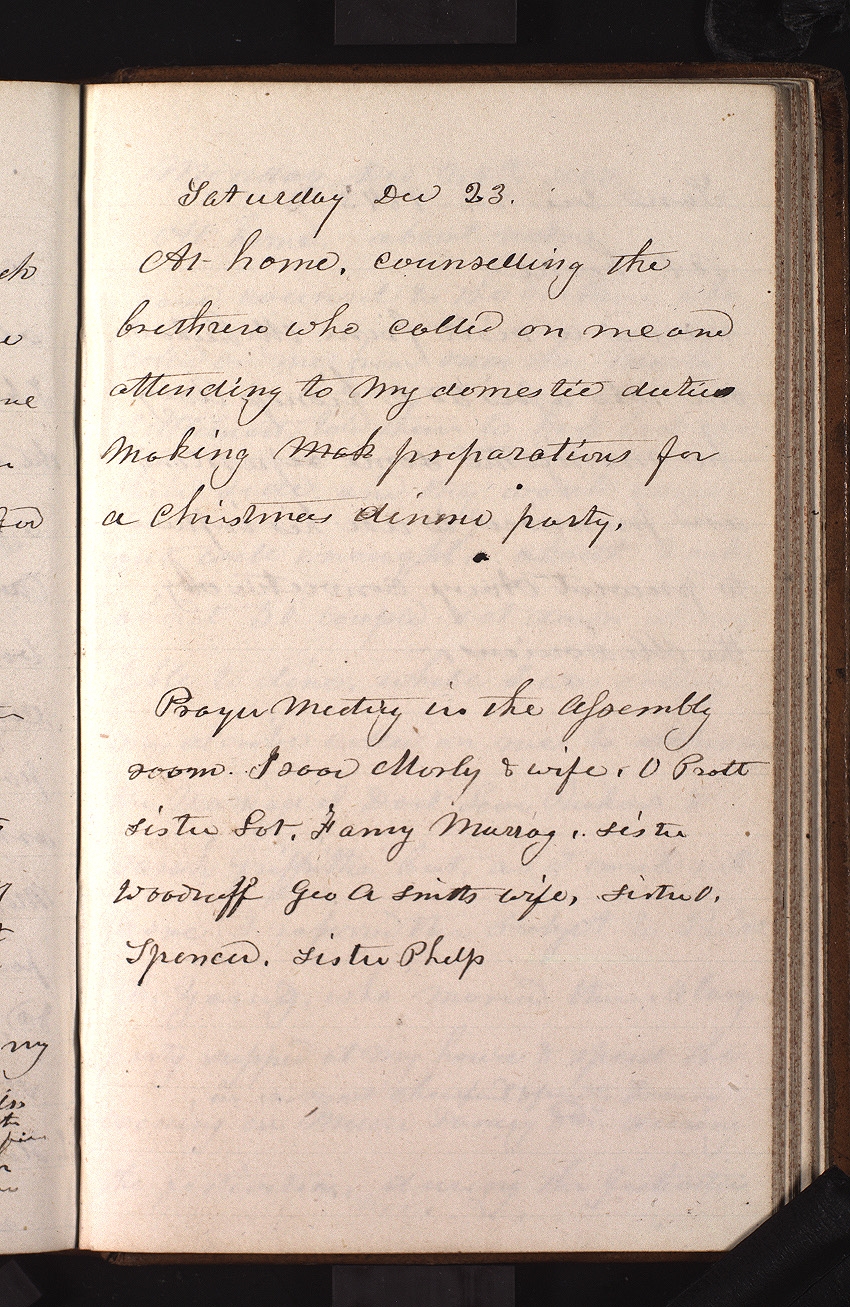 Saturday Dec 23.
At home, counselling the
brethren who called on me and
attending to my domestic duties
making mak preparations for
a christmas dinner party.
Prayer Meeting in the Assembly
room. Isaac Morly & wife. O Pratt
sister Lot, Fanny Murray, sister
Woodruff Geo A Smiths wife, sister O.
Spencer. sister Phelp
ch
my